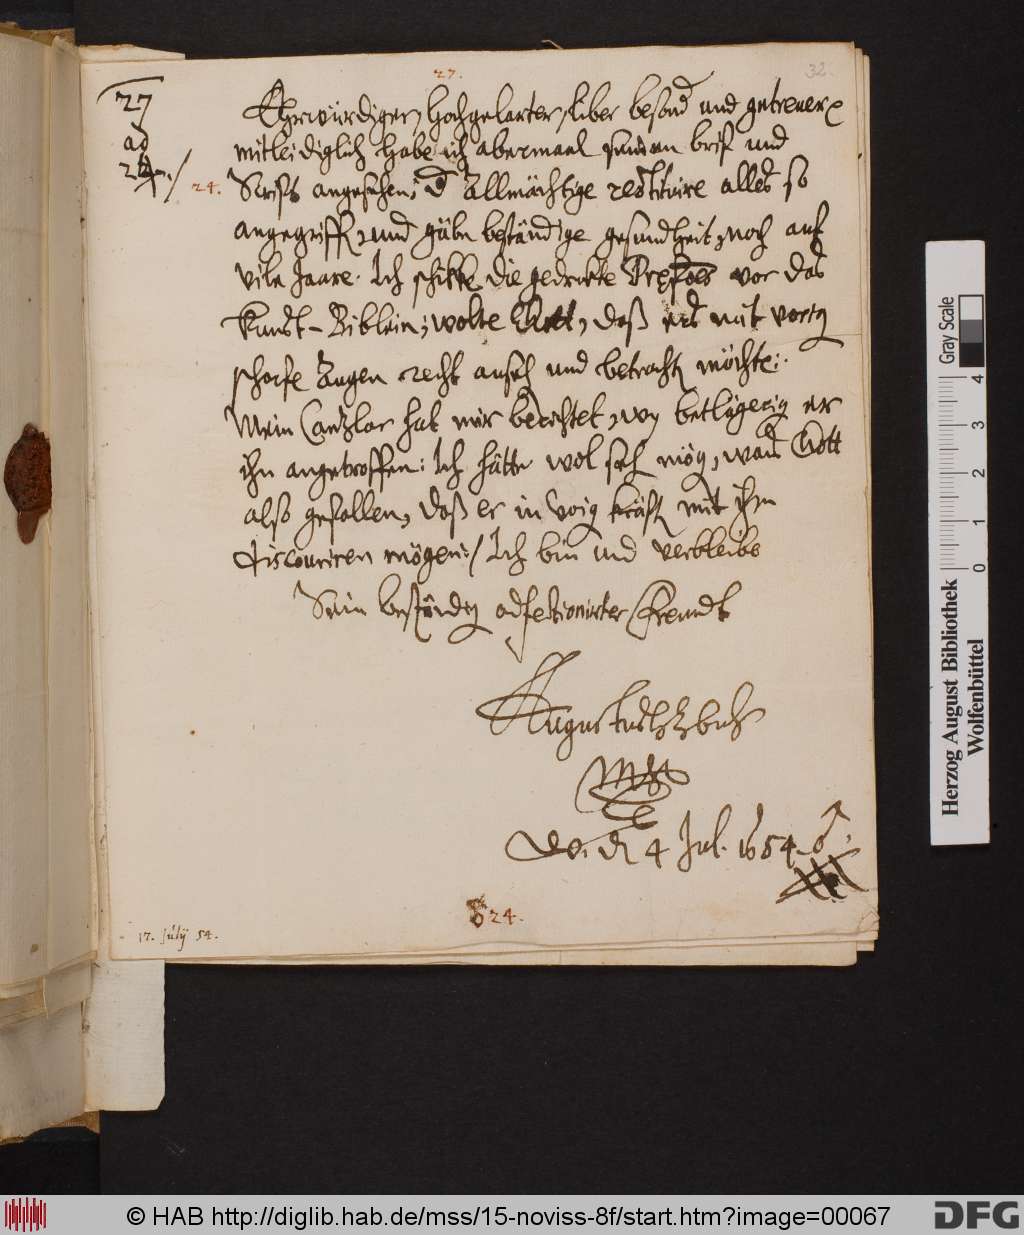 27.
32.
27
ad
24.
Ehrwürdiger, Hochgelarter, lieber besond und getreuer
mitleidiglich habe ich abermaal seinen brif und
Scrift angesehen; d Allmächtige restituire alles so
angegriff, und gäbe beständige gesundheit, noch auf
vile Jaare. Ich schikke die gedrukte vor das
Kunst-Biblein; wolte Gott, daß ers mit vorig
scharfe Augen recht anseh und betracht möchte:
Mein Cantzlar hat mir berichtet, wy betlägerig er
ihn angetroffen: Ich hätte wol seh mög, wans Gott
also gefallen, daß er in vorig kräft mit ihm
discouriren mögen:/ Ich bin und verbleibe
Sein beständig adfectionirter Freundt
Augustus H Z B
4 Jul. 1654. ♂.
24.
17. Julij 54.
Herzog August Bibliothek
Wolfenbüttel
Gray Scale
0 1 2 3 4
© HAB http://diglib.hab.de/mss/15-noviss-8f/start.htm?image=00067
DFG